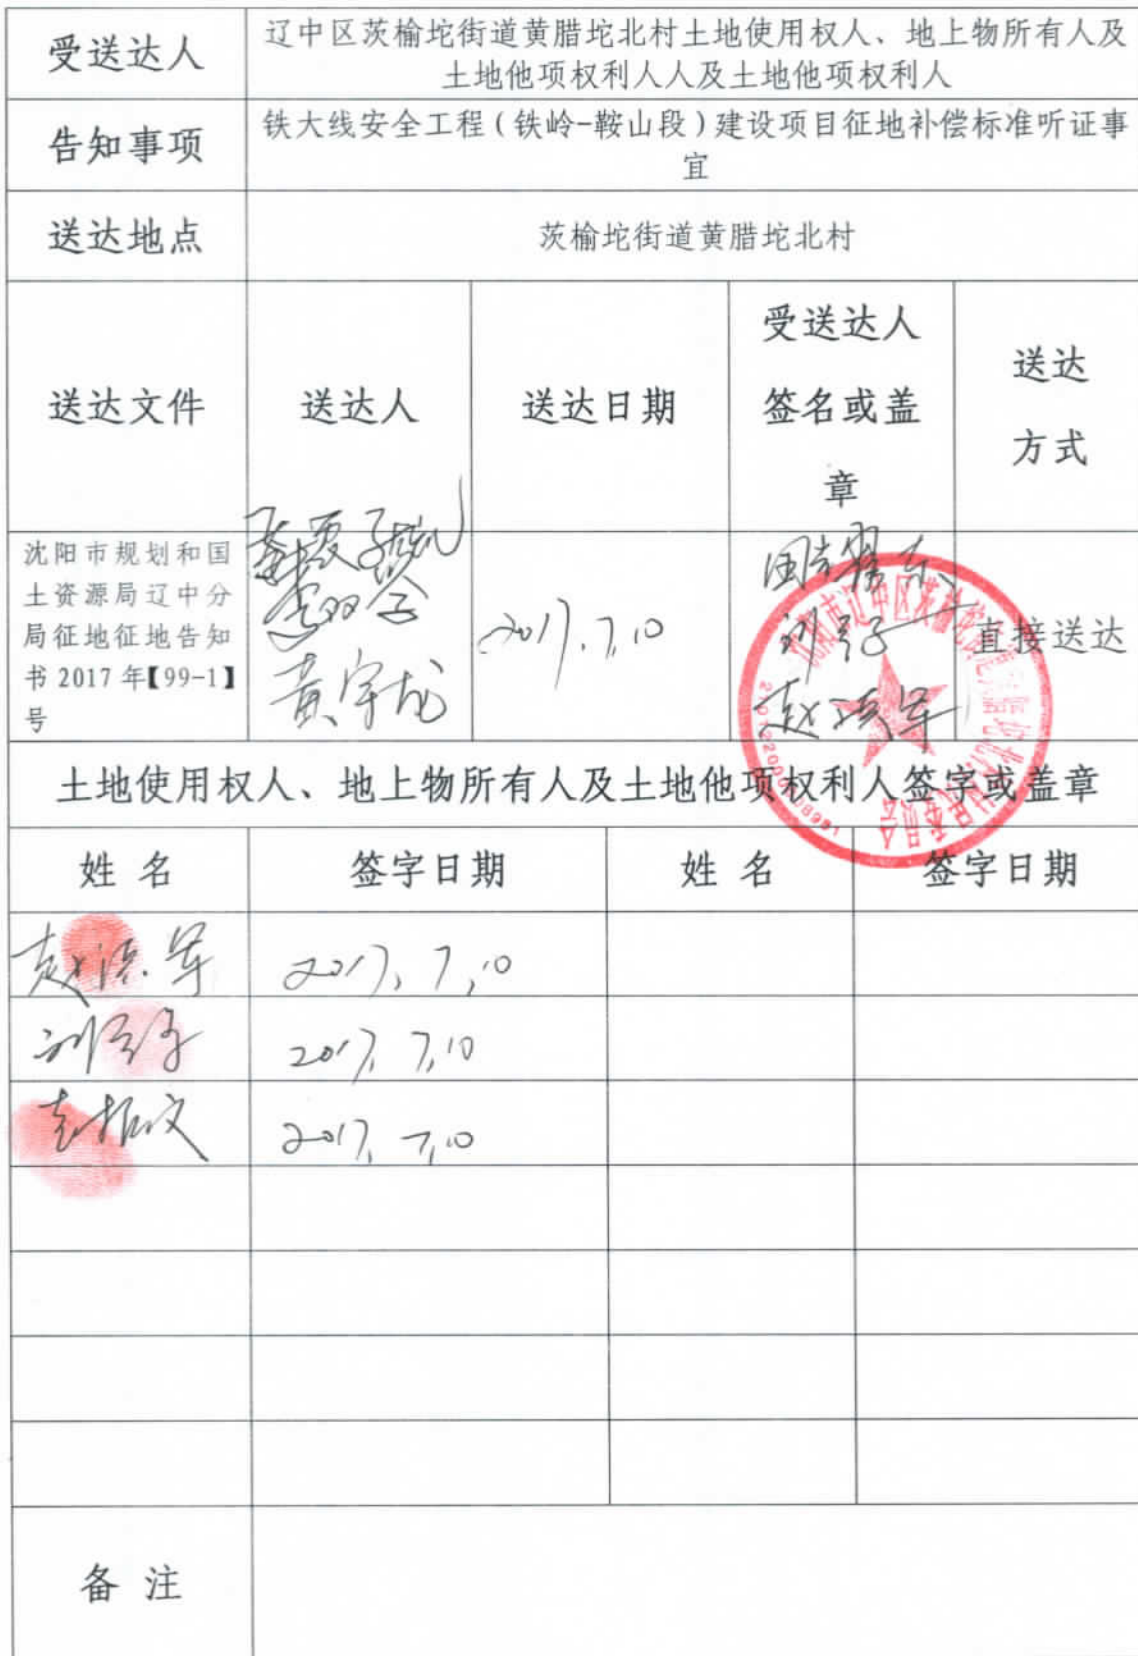 受送达人
辽中区茨榆坨街道黄腊坨北村土地使用权人、地上物所有人及
土地他项权利人人及土地他项权利人
告知事项
铁大线安全工程(铁岭-鞍山段)建设项目征地补偿标准听证事
宜
送达地点
茨榆坨街道黄腊坨北村
送达文件
送达人
送达日期
受送达人
签名或盖
章
送达
方式
沈阳市规划和国
土资源局辽中分
局征地征地告知
书 2017 年【99-1】
号
黄宇龙
2017.7.10
直接送达
土地使用权人、地上物所有人及土地他项权利人签字或盖章
姓 名
签字日期
姓 名
签字日期
2017,7,10
2017,7,10
2017,7,10
备 注